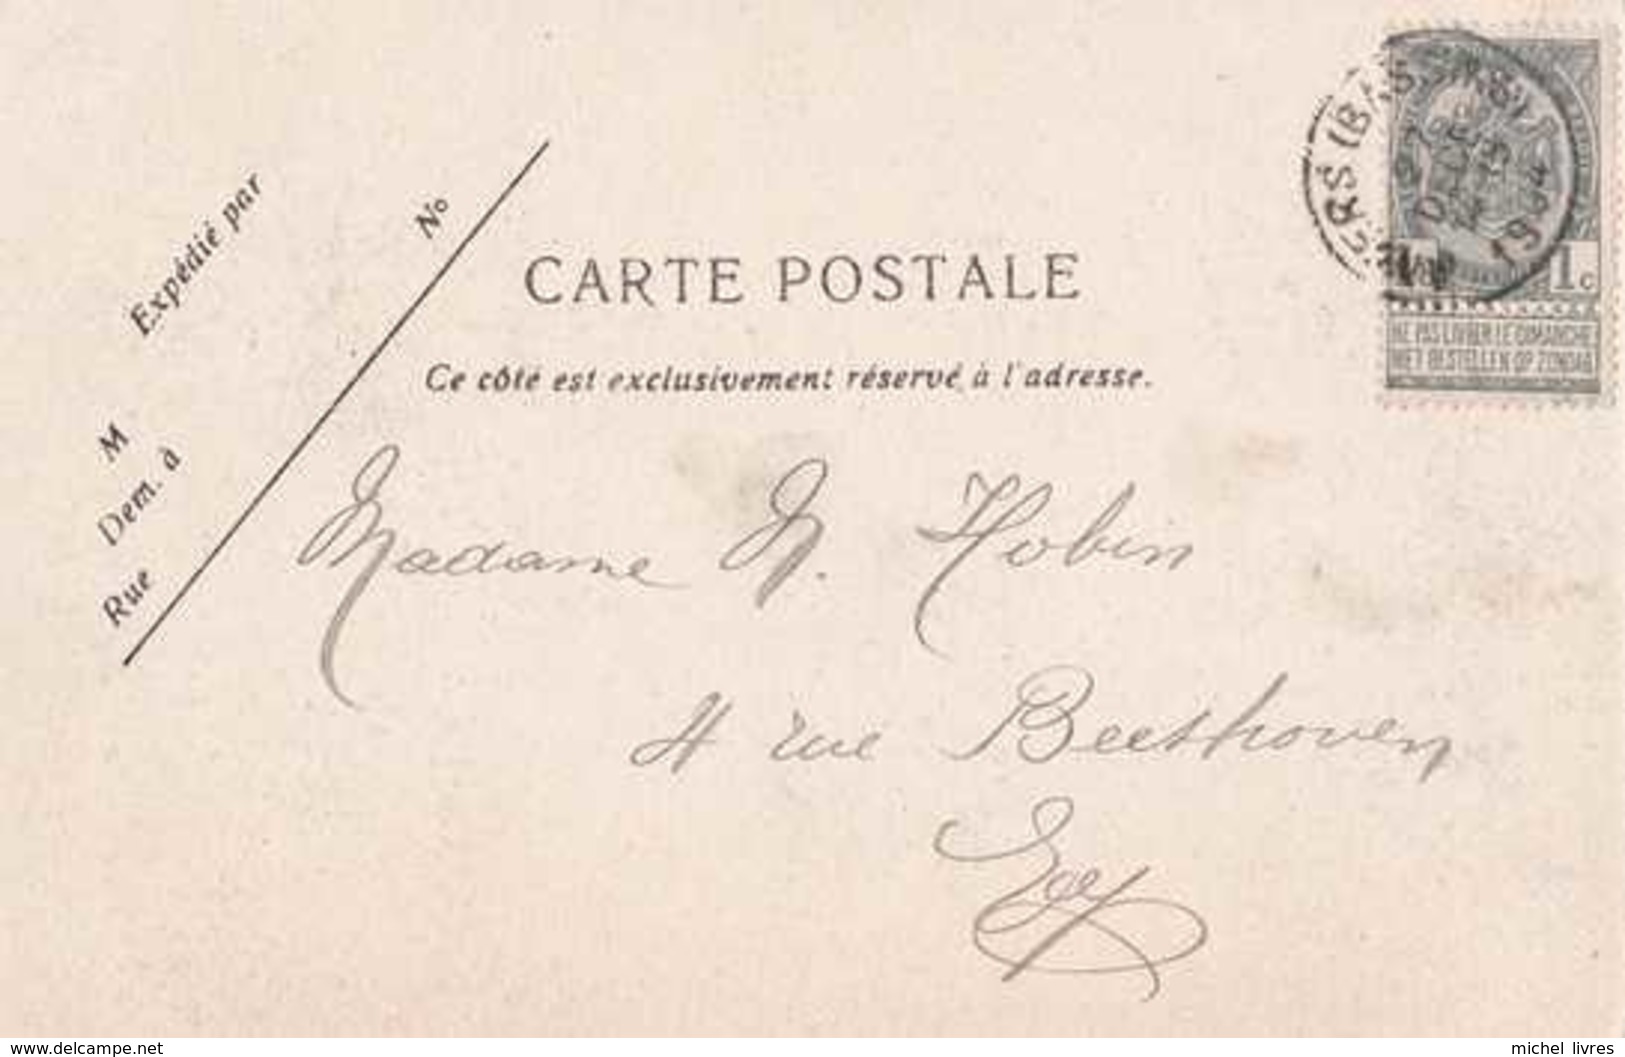 Expédié par
No
M
Dem. à
Rue
CARTE POSTALE
Ce côté est exclusivement réservé à l'adresse.
1c
NE PAS LIVRER LE DIMANCHE
NIET BESTELLEN OP ZONDAG
1904
Madame N. Hobin
4 rue Beethoven
www.delcampe.net
michel_livres